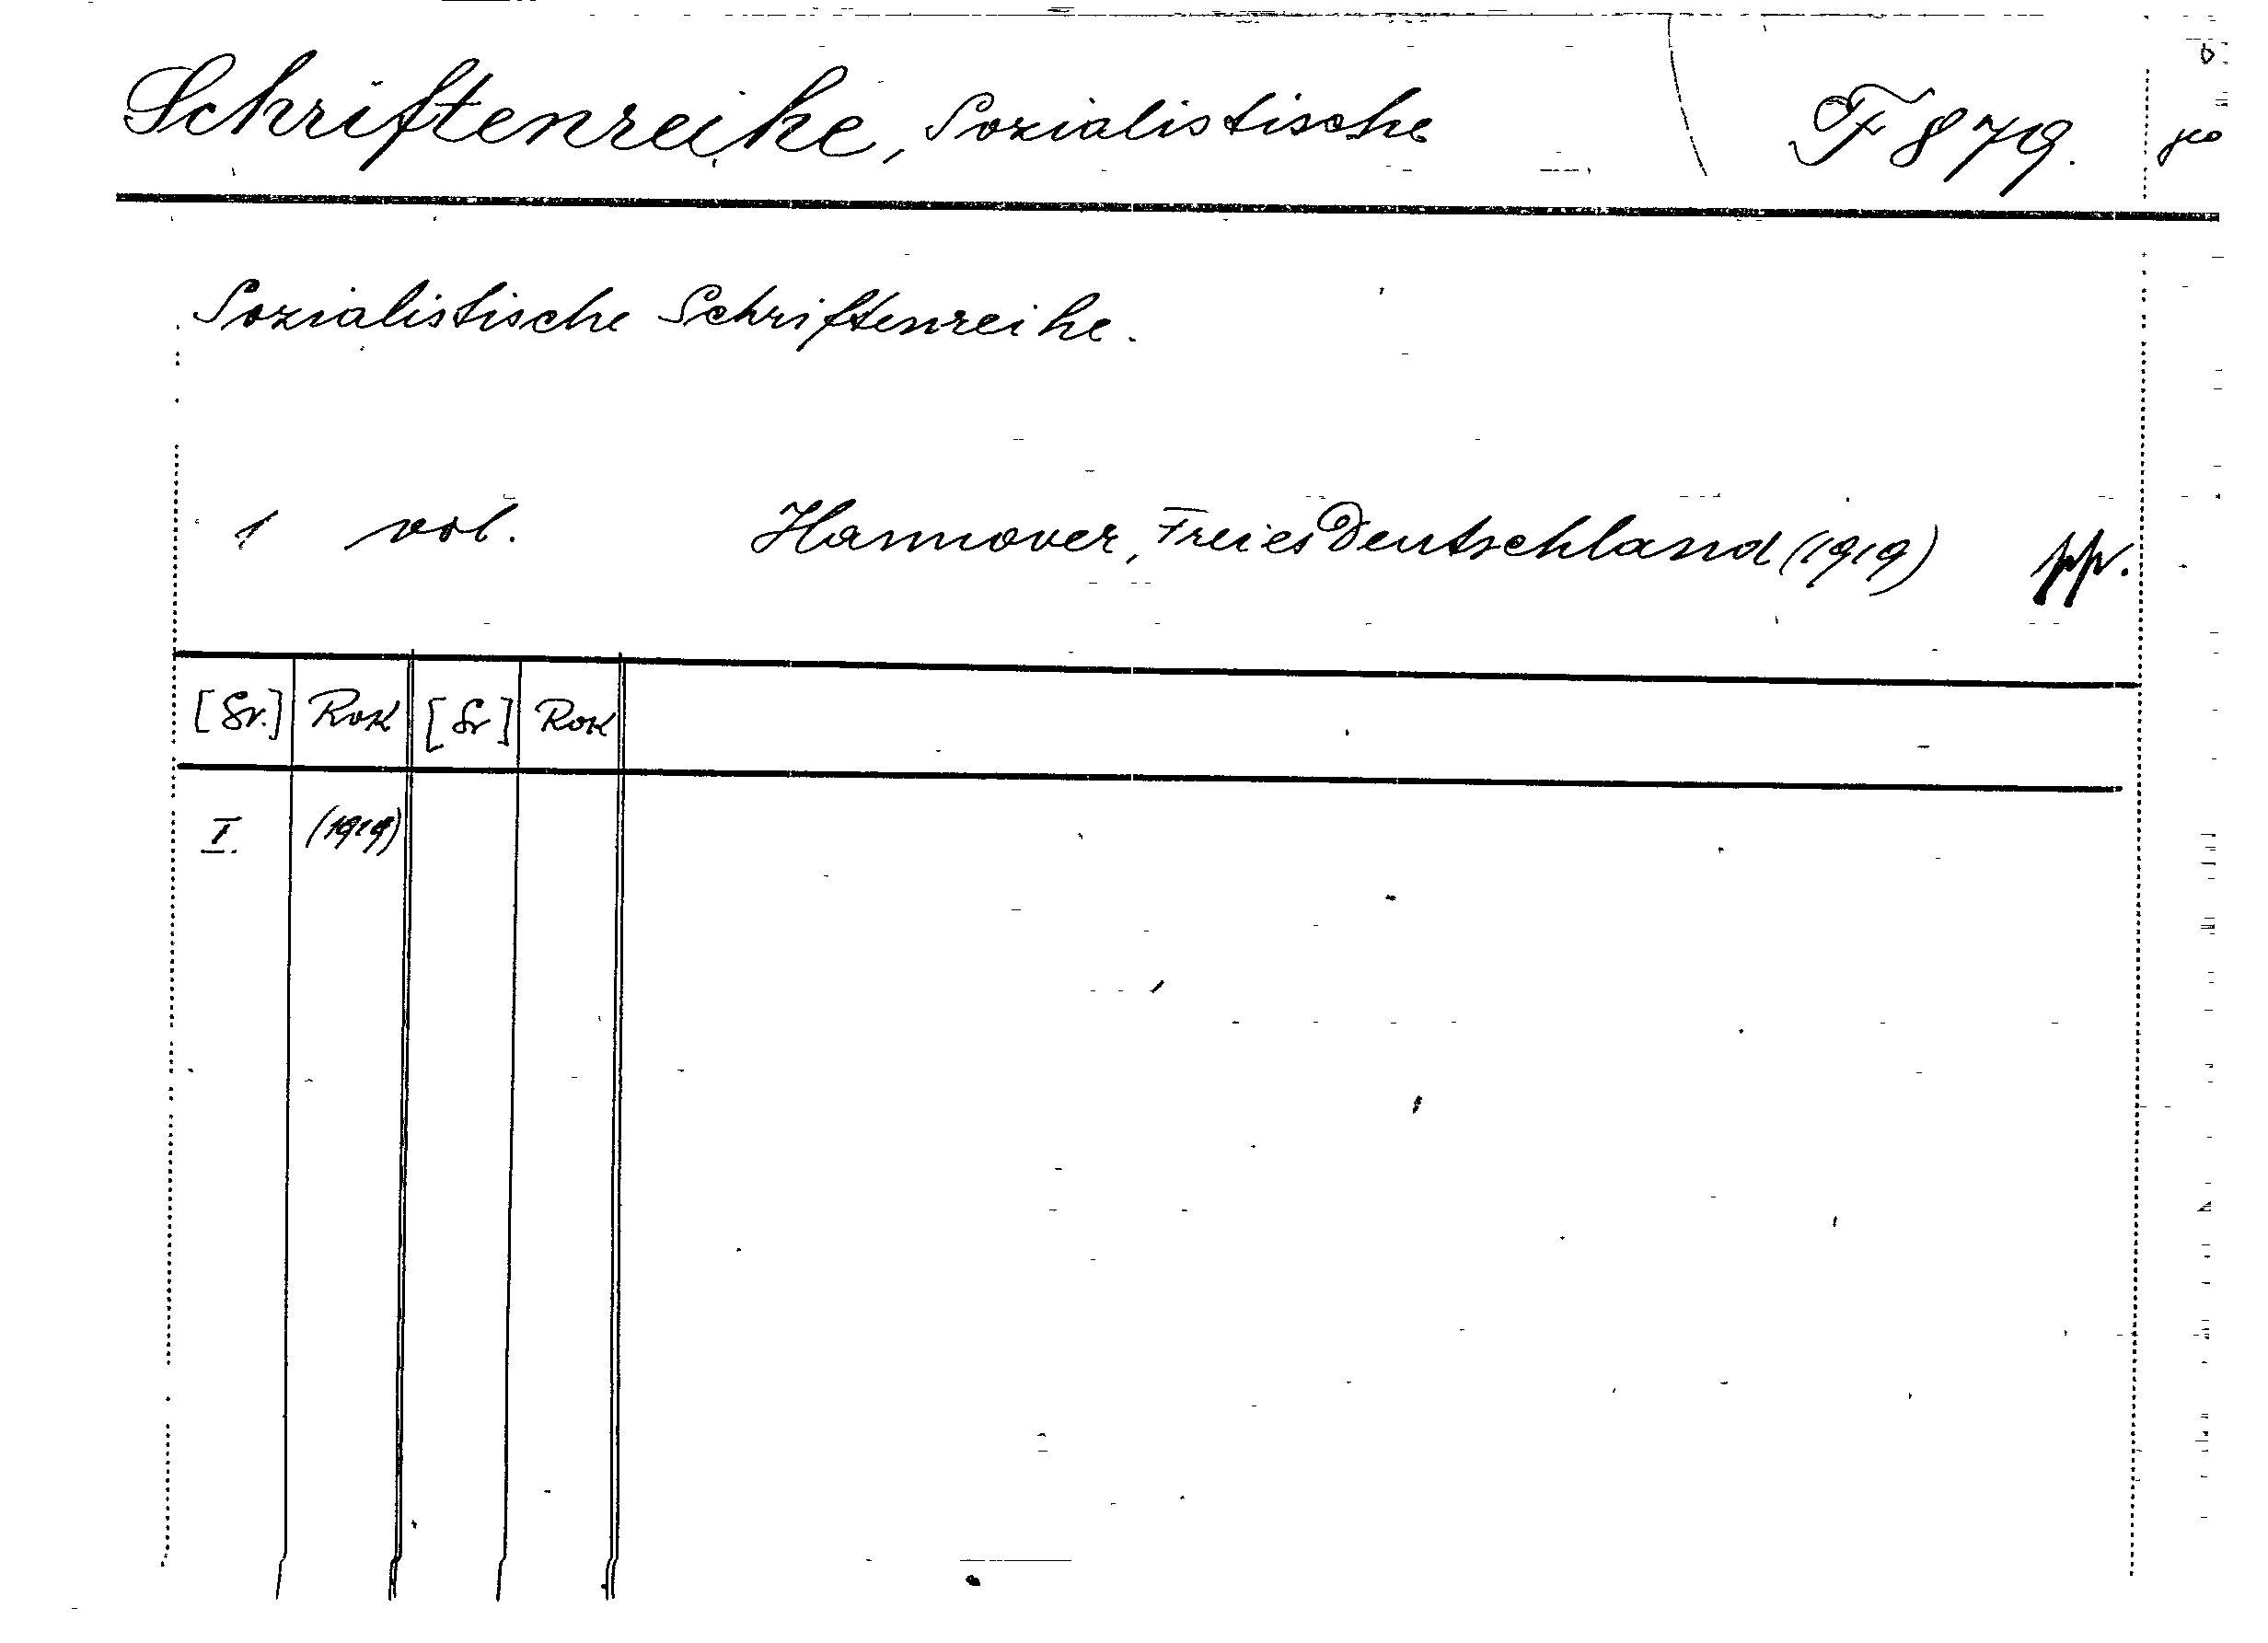 Schriftenreihe, Sozialistische F 879.
Sozialistische Schriftenreihe.
1 vol. Hannover, Freies Deutschland (1919) ppr.
[Sv.] Rok [Sv] Rok
I. (1919)